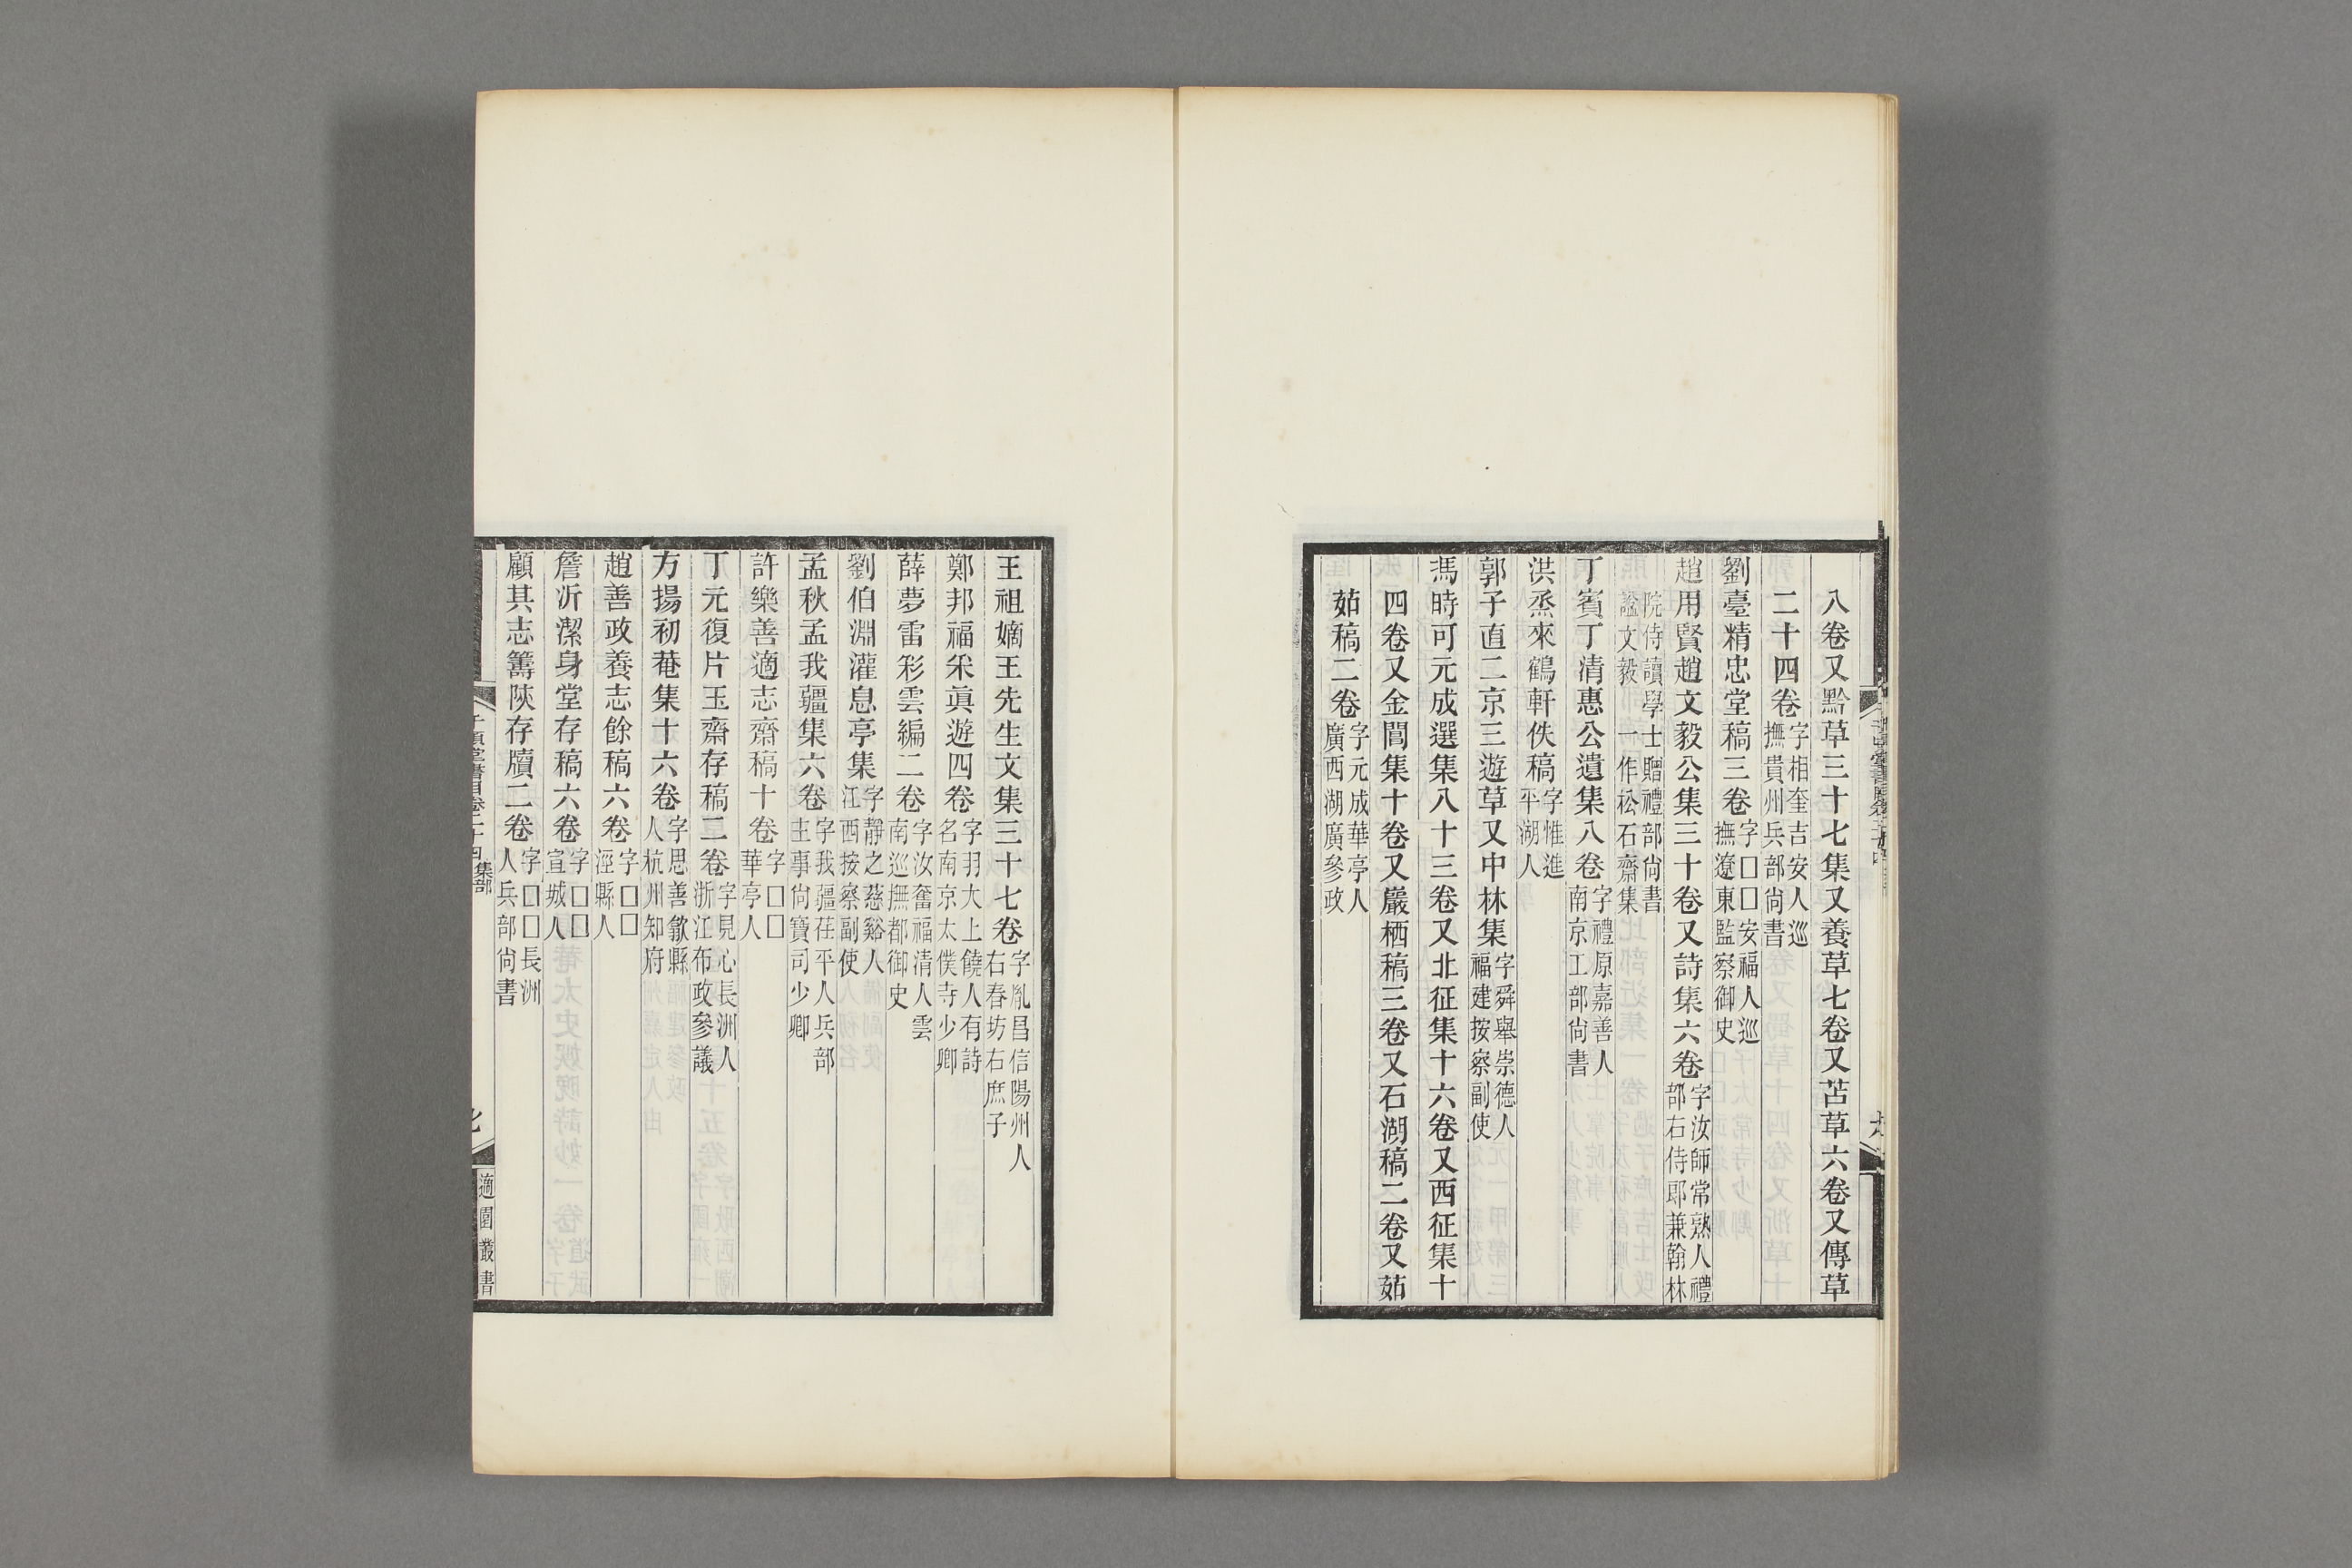 八卷又黔草三十七集又養草七卷又苫草六卷又傳草
二十四卷字相奎吉安人巡撫貴州兵部尙書
劉臺精忠堂稿三卷字□□安福人巡撫遼東監察御史
趙用賢趙文毅公集三十卷又詩集六卷字汝師常熟人禮部右侍郎兼翰林
院侍讀學士贈禮部尙書諡文毅一作松石齋集
丁賓丁淸惠公遺集八卷字禮原嘉善人南京工部尙書
洪烝來鶴軒佚稿字惟進平湖人
郭子直二京三遊草又中林集字舜舉崇德人福建按察副使
馮時可元成選集八十三卷又北征集十六卷又西征集十
四卷又金閶集十卷又巖栖稿三卷又石湖稿二卷又茹
茹稿二卷字元成華亭人廣西湖廣參政
王祖嫡王先生文集三十七卷字胤昌信陽州人右春坊右庶子
鄭邦福采眞遊四卷字羽大上饒人有詩名南京太僕寺少卿
薛夢雷彩雲編二卷字汝奮福清人雲南巡撫都御史
劉伯淵灌息亭集字靜之慈谿人江西按察副使
孟秋孟我疆集六卷字我疆茌平人兵部主事尙寶司少卿
許樂善適志齋稿十卷字□□華亭人
丁元復片玉齋存稿二卷字見心長洲人浙江布政參議
方揚初菴集十六卷字思善歙縣人杭州知府
趙善政養志餘稿六卷字□□涇縣人
詹沂潔身堂存稿六卷字□□宣城人
顧其志籌陝存牘二卷字□□長洲人兵部尙書
集部
適園叢書